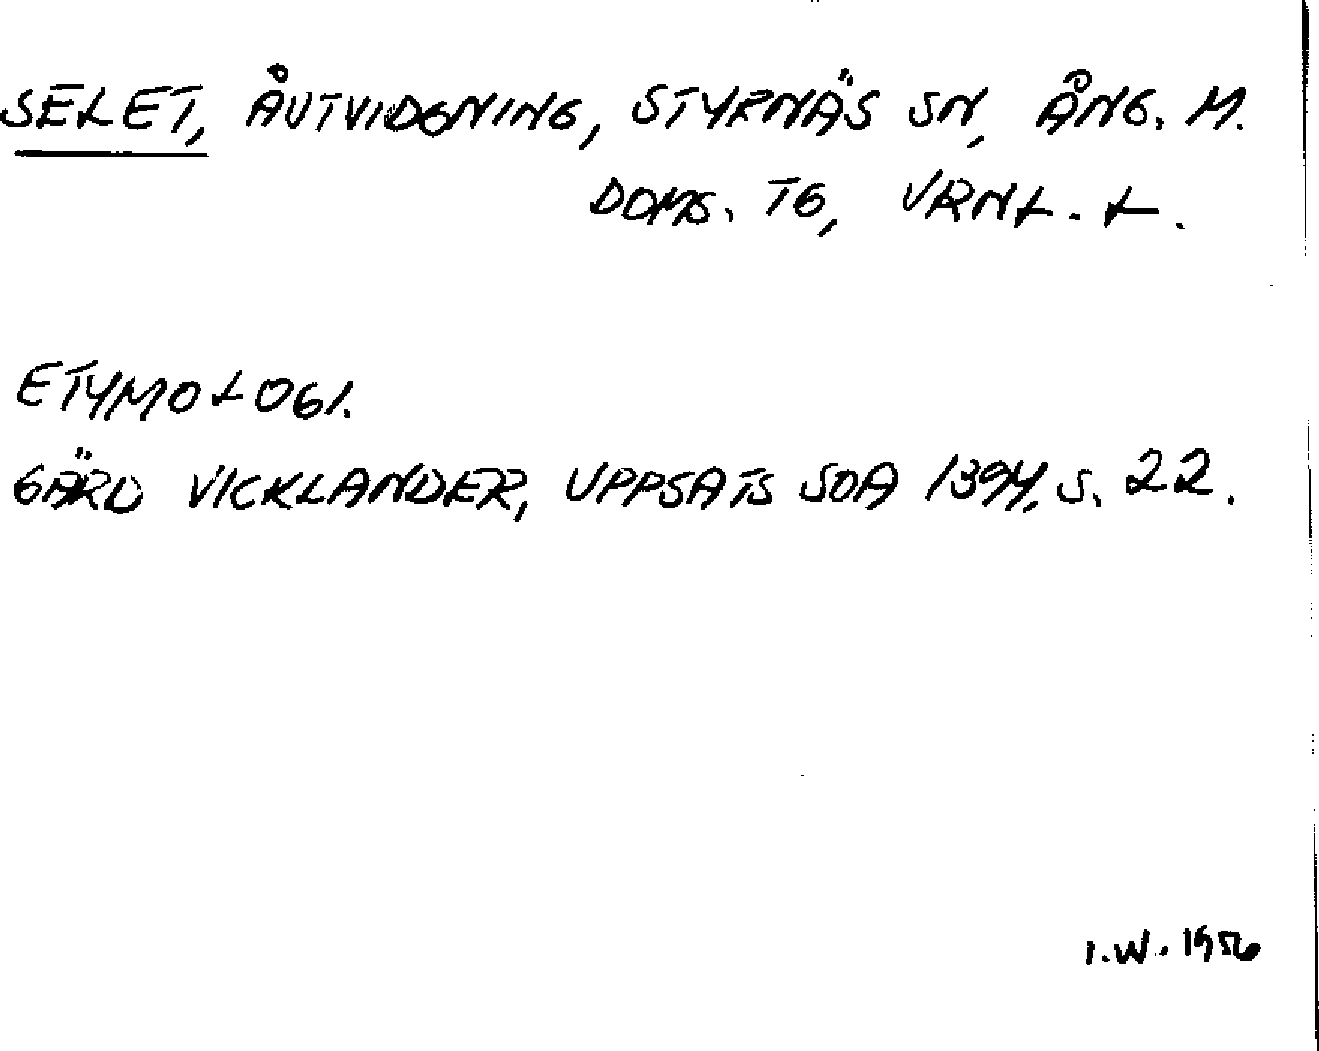 SELET, ÅUTVIDGNING, STYRNÄS SN, ÅNG. M.
DOMS. TG, VRNL. L.
ETYMOLOGI.
GÄRD VICKLANDER, UPPSATS SOA 1394, S. 22.
I.W. 1956